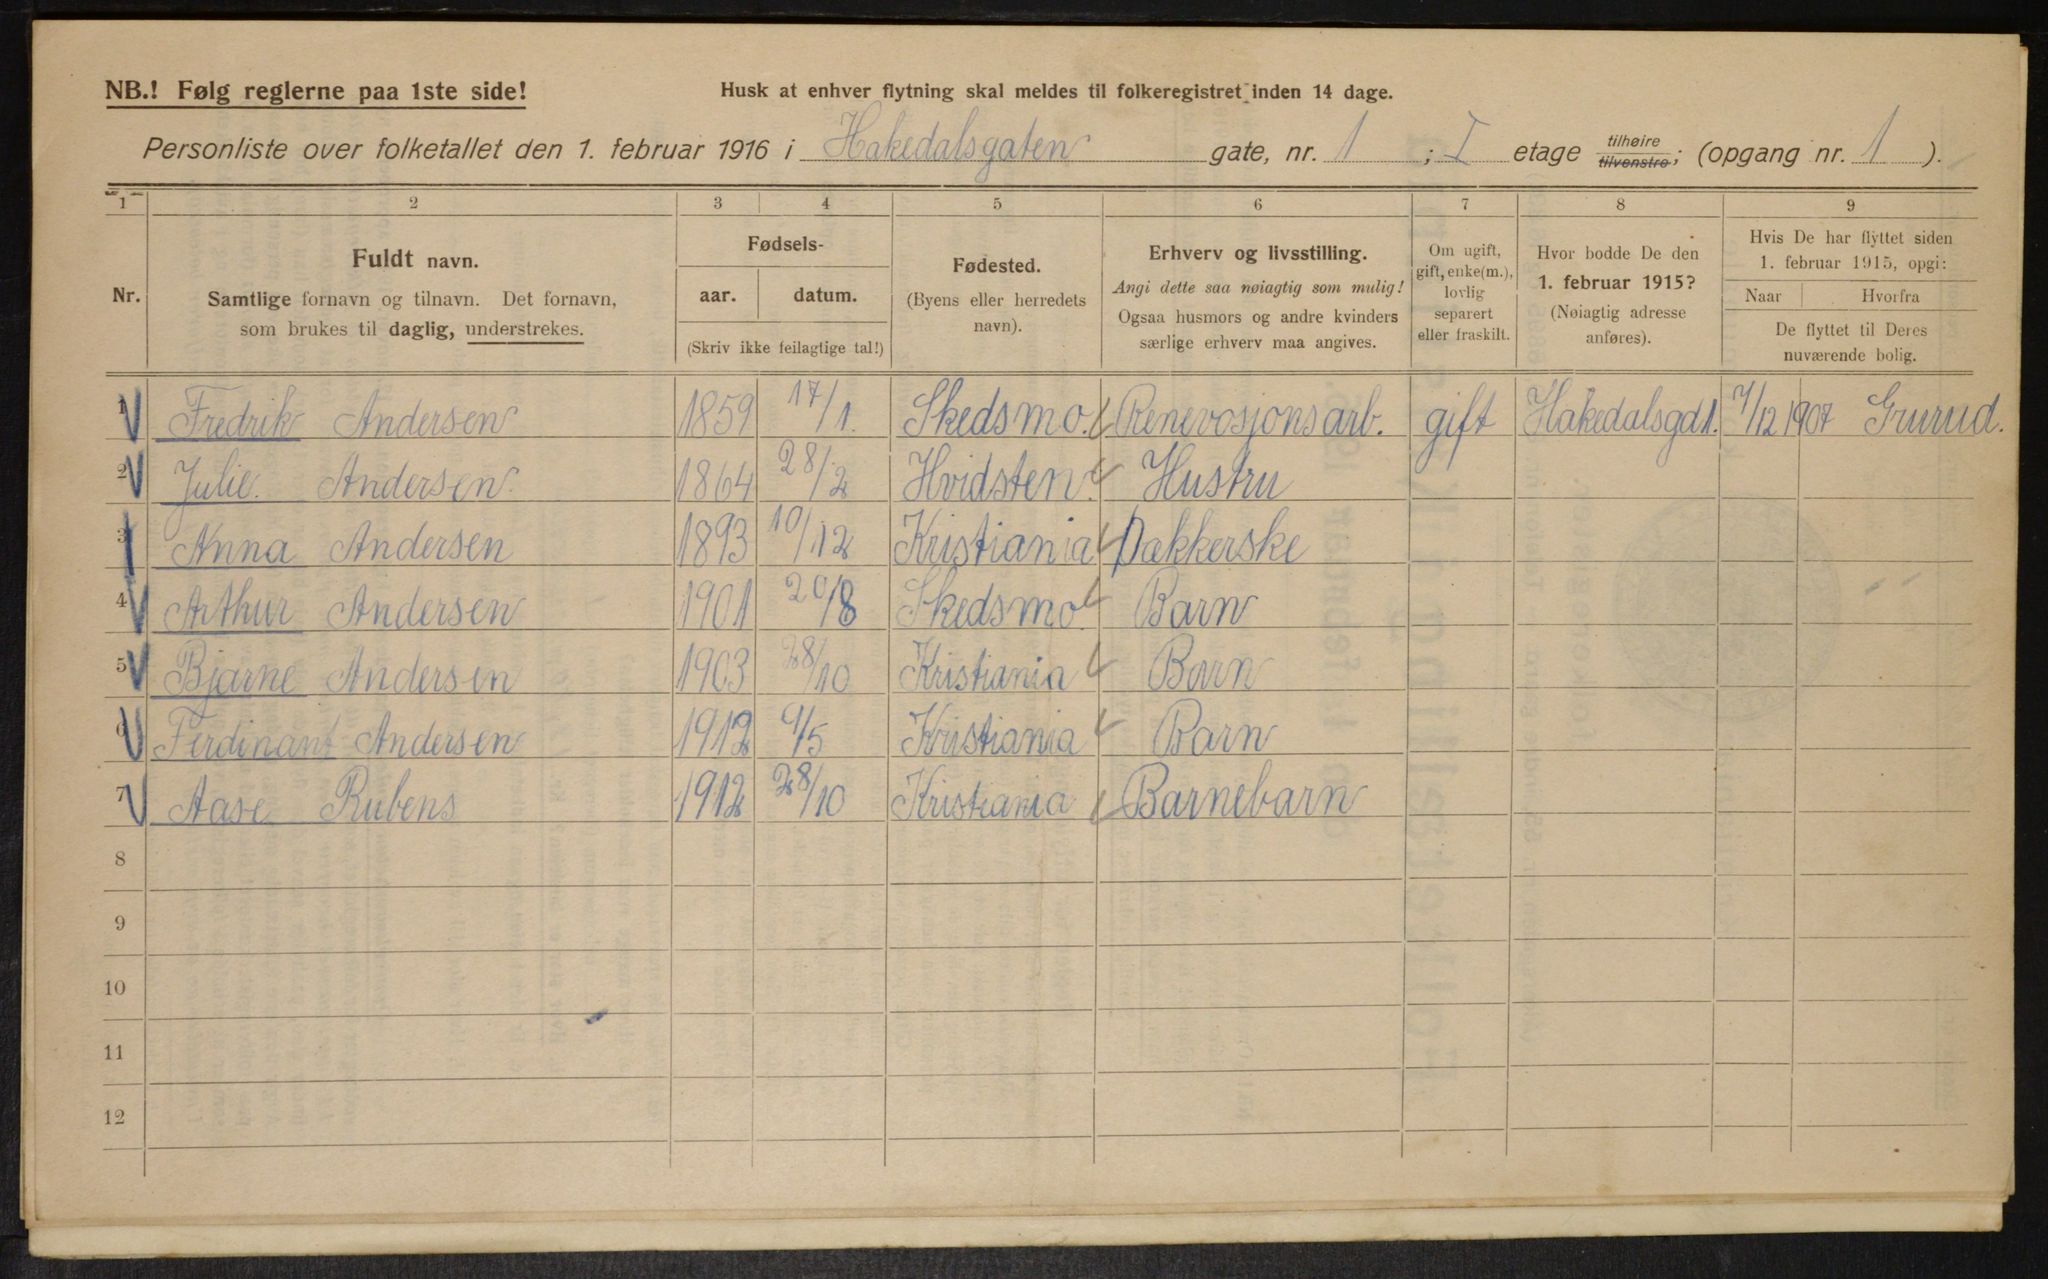 NB.! Følg reglerne paa 1ste side!
Husk at enhver flytning skal meldes til folkeregistret inden 14 dage.
Personliste over folketallet den 1. februar 1916 i Hakedalsgaten gate, nr. 1 ; I etage tilhøire tilvenstre; (opgang nr. 1 ).
1 2 3 4 5 6 7 8 9
Nr.
Fuldt navn.
Samtlige fornavn og tilnavn. Det fornavn,
som brukes til daglig, understrekes.
Fødsels-
aar. datum.
(Skriv ikke feilagtige tal!)
Fødested.
(Byens eller herredets
navn).
Erhverv og livsstilling.
Angi dette saa nøiagtig som mulig!
Ogsaa husmors og andre kvinders
særlige erhverv maa angives.
Om ugift,
gift, enke(m.),
lovlig
separert
eller fraskilt.
Hvor bodde De den
1. februar 1915?
(Nøiagtig adresse
anføres).
Hvis De har flyttet siden
1. februar 1915, opgi:
Naar Hvorfra
De flyttet til Deres
nuværende bolig.
1 Fredrik Andersen 1859 17/1. Skedsmo. Renevosjonsarb. gift Hakedalsgd1. 1/12 1907 Grurud.
2 Julie Andersen 1864 28/2 Hvidsten. Hustru
3 Anna Andersen 1893 10/12 Kristiania Pakkerske
4 Arthur Andersen 1901 20/8 Skedsmo. Barn
5 Bjarne Andersen 1903 28/10 Kristiania Barn
6 Ferdinant Andersen 1912 9/5 Kristiania Barn
7 Aase Rubens 1912 28/10 Kristiania Barnebarn
8
9
10
11
12